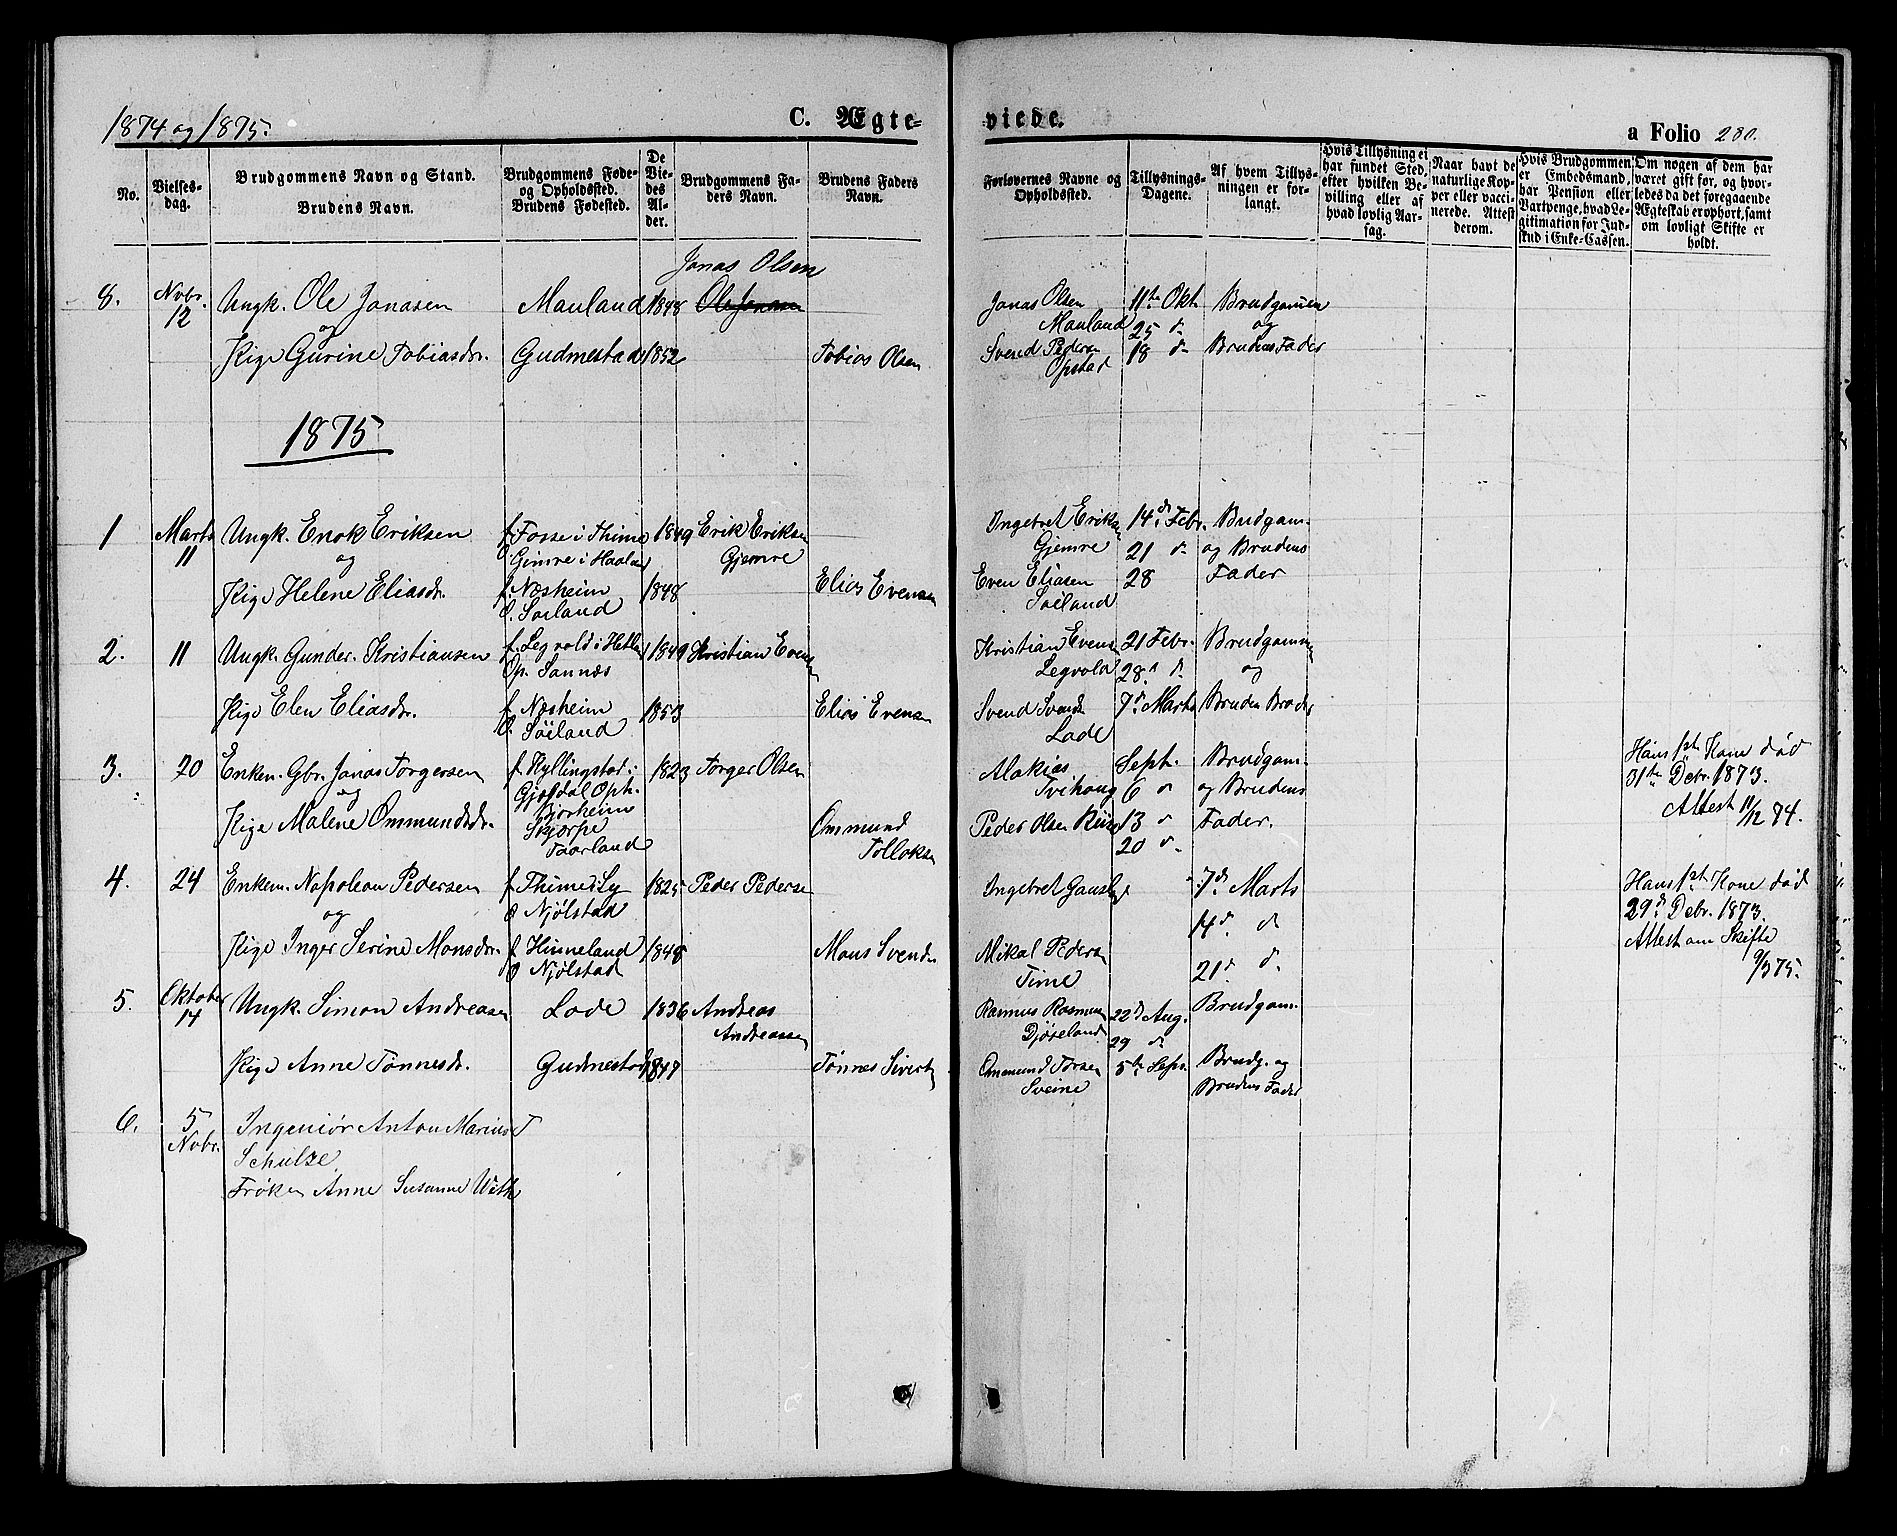 1874 og 1875.
C. Ægte-
viede.
a Folio 280.
No.
Vielses-
dag.
Brudgommens Navn og Stand.
Brudens Navn.
Brudgommens Føde-
og Opholdssted.
Brudens Fødested.
De
Vie-
des
Al-
der.
Brudgommens Fa-
ders Navn.
Brudens Faders
Navn.
Forlovernes Navne og
Opholdssted.
Tillysnings-
Dagene.
Af hvem Tillys-
ningen er for-
langt.
Hvis Tillysning ei
har fundet Sted,
efter hvilken Be-
villing eller af
hvad lovlig Aar-
sag.
Naar havt de
naturlige Kop-
per eller vacci-
nerede. Attest
derom.
Hvis Brudgommen
er Embedsmand,
har Pension eller
Vartpenge, hvad Le-
gitimation for Ind-
skud i Enke-Cassen.
Om nogen af dem har
været gift før, og hvor-
ledes da det foregaaende
Ægteskab er ophørt, samt
om lovligt Skifte er
holdt.
8. Nvbr. 12
Ungk. Ole Jonasen
og
Pige Gurine Tobiasdr.
Mauland 1848
Gudmestad 1852
Jonas Olsen
Ole Jonasen
Tobias Olsen
Jonas Olsen
Mauland
Svend Peders
Opstad
11te Okt
25 d-
18 d-
Brudgommen
og
Brudens Fader
1875
1 Marts 11
Ungk. Enok Eriksen
og
Pige Helene Eliasdr.
f. Fosse i Thime
O. Gimre i Haaland
f. Næsheim
O. Søiland
1849
1848
Erik Eriksen
Gjemre
Elias Evensen
Ingebret Eriksen
Gjemre
Even Eliasen
Søiland
14de Febr.
21 d-
28
Brudgom-
og Brudens
Fader
2. 11
Ungk. Gunder Kristiansen
Pige Elen Eliasdr.
f. Legvold i Hetland
Op. Sannæs
f. Næsheim
O. Søiland
1849
1853
Kristian Evensen
Elias Evensen
Kristian Evensen
Legvold
Svend Svends
Lode
21 Febr.
28. d.
7de Marts
Brudgommen
og
Bruden Broder
3. 20
Enkem. Gbr. Jonas Torgersen
og
Pige Malene Ommundsdr.
f. Kyllingstad i
Gjesdal Oph.
Bjorheim
Skjorpe
Taarland
1823
Torger Olsen
Ommund
Tollaksen
Malakias
Tvihoug
Peder Olsen
Sept.
6 d
13 d
20 d-
Brudgom-
og Brudens
Fader.
Hans 1st Kone død
31te Debr. 1873.
Attest 11/12 74.
4. 24
Enkem. Napoleon Pedersen
og
Pige Inger Serine Monsdr.
f. Thime i Ly
O Njølstad
f Hinneland
O Njølstad
1825
1848
Peder Pedersen
Mons Svends
Ingebret Gausl
Mikal Pedersen
Time
7de Marts
14de d
21de d.
Hans 1st Kone død
29de Debr. 1873.
Attest om Skifte
9/3 75.
5. Oktober 14
Ungk. Simon Andreasen
Pige Anne Tønnesdr.
Lode
Gudmestad
1836
1847
Andreas
Andreassen
Tønnes Sivert
Rasmus Rasmussen
Djøseland
Ommund Torsen
Sveine
22de Aug.
29 d.
5te Sept.
Brudgom-
Brudg. og
Brudens Fader
6. 5
Nvbr.
Ingeniør Anton Marius T
Schulze
Frøken Anne Susanne With